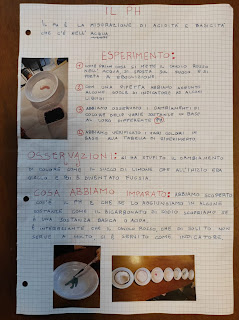 IL PH
IL PH È LA MISURAZIONE DI ACIDITÀ E BASICITÀ
CHE C'È NELL'ACQUA.
ESPERIMENTO:
① COME PRIMA COSA SI METTE IL CAVOLO ROSSO
NELL'ACQUA, SI SPOSTA SUL FUOCO E SI
METTE A EBOLLIZIONE.
② CON UNA PIPETTA ABBIAMO AGGIUNTO
ALCUNE GOCCE DI INDICATORE AD ALCUNI
LIQUIDI
③ ABBIAMO OSSERVATO I CAMBIAMENTI DI
COLORE DELLE VARIE SOSTANZE IN BASE
AL LORO DIFFERENTE PH
④ ABBIAMO VERIFICATO I VARI COLORI IN
BASE ALLA TABELLA DI RIFERIMENTO
OSSERVAZIONI: MI HA STUPITO IL CAMBIAMENTO
DI COLORE COME IL SUCCO DI LIMONE CHE ALL'INIZIO ERA
GIALLO E POI È DIVENTATO FUCSIA.
COSA ABBIAMO IMPARATO: ABBIAMO SCOPERTO
IL PH E CHE SE LO AGGIUNGIAMO IN ALCUNE
SOSTANZE COME IL BICARBONATO DI SODIO SCOPRIAMO SE
È UNA SOSTANZA BASICA O ACIDA.
È INTERESSANTE CHE IL CAVOLO ROSSO, CHE DI SOLITO NON
SERVE A MOLTO, CI È SERVITO COME INDICATORE.